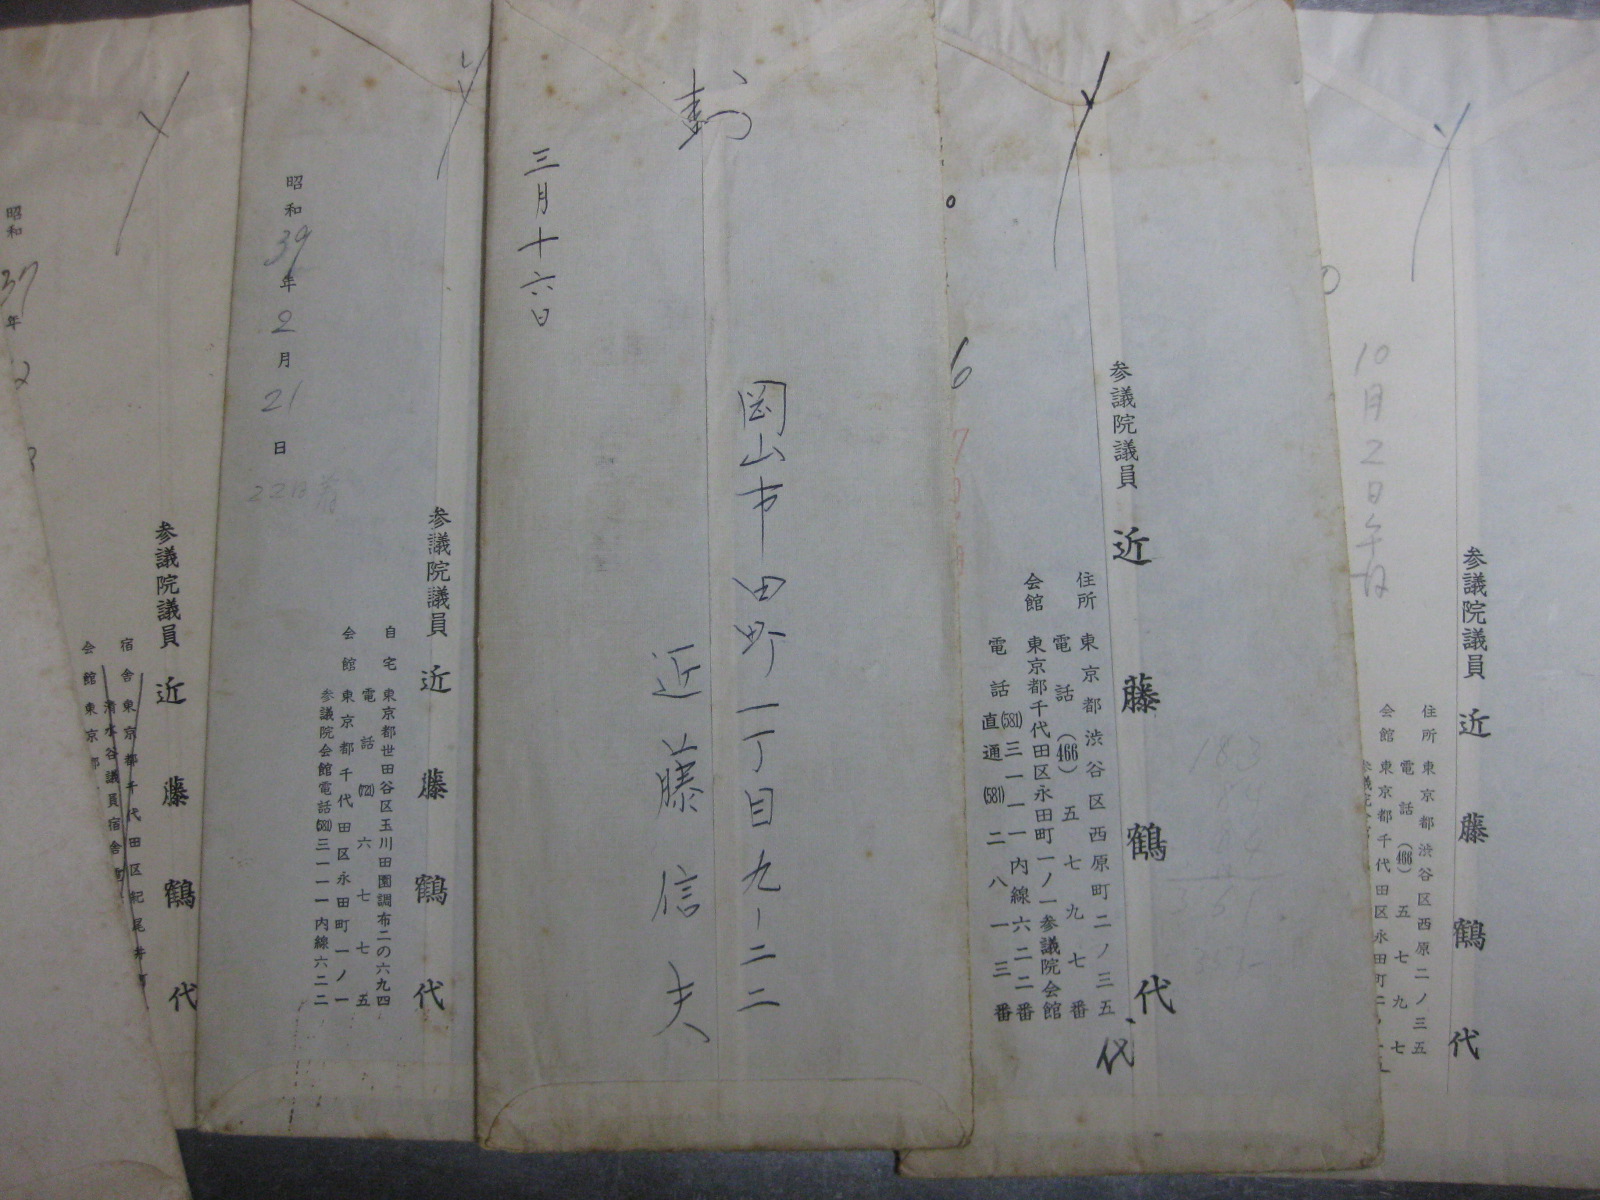 昭和37年
参議院議員 近藤鶴代
宿舎 東京都千代田区紀尾井町
清水谷議員宿舎
会館 東京都
〆
昭和39年2月21日
22日着
参議院議員 近藤鶴代
自宅 東京都世田谷区玉川田園調布二の六九四
電話(721)六七七五
会館 東京都千代田区永田町一ノ一
参議院会館電話(581)三一一一内線六二二
封
三月十六日
岡山市田町一丁目九ー二二
近藤信夫
〆
参議院議員 近藤鶴代
代
住所 東京都渋谷区西原町二ノ三五
電話(466)五七九七番
会館 東京都千代田区永田町一ノ一参議院会館
電話(581)三一一一内線六二二番
直通(581)二八一三番
183
84
361
〆
10月2日午后
参議院議員 近藤鶴代
住所 東京都渋谷区西原二ノ三五
電話(466)五七九七
会館 東京都千代田区永田町